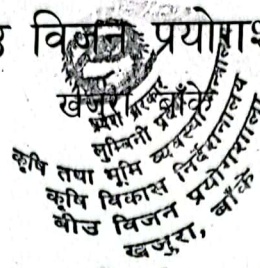 उ विजन प्रयोगश
खजुरा, बाँके
लुम्बिनी प्रदेश
कृषि तथा भूमि व्यवस्था
कृषि विकास निर्देशनालय
बीउ विजन प्रयोगशाला
खजुरा, बाँके